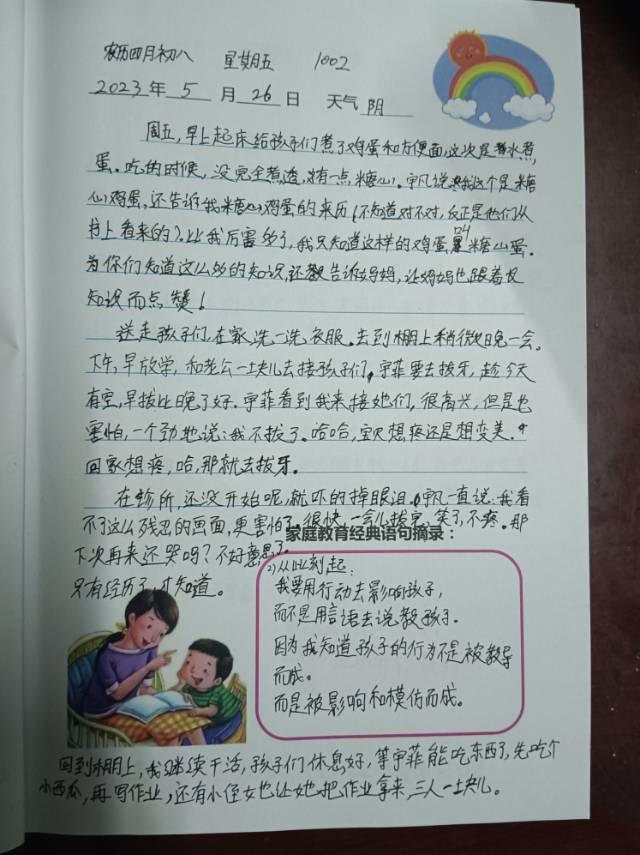 农历四月初八 星期五 1002
2023年 5 月 26 日 天气 阴
周五,早上起床给孩子们煮了鸡蛋和方便面,这次是水煮
蛋。吃的时候,没完全煮透,有一点糖心。宇凡说我这个是糖
心鸡蛋,还告诉我糖心鸡蛋的来历(不知道对不对,反正是他们从
书上看来的)。比我厉害多了,我只知道这样的鸡蛋叫糖心蛋。
为你们知道这么多的知识,还教告诉妈妈,让妈妈也跟着长
知识而点赞!
送走孩子们,在家洗一洗衣服。去到棚上稍微晚一会。
下午,早放学,和老公一块儿去接孩子们,宇菲要去拔牙,趁今天
有空,早拔比晚了好。宇菲看到我来接她们,很高兴,但是也
害怕,一个劲地说:我不拔了。哈哈,宝贝想疼还是想变美。
回家想疼,哈,那就去拔牙。
在诊所,还没开始呢,就吓的掉眼泪。宇凡一直说:我看
不了这么残忍的画面,更害怕了。很快一会儿拔完,笑了,不疼。那
家庭教育经典语句摘录:
下次再来还哭吗?不好意思了。
只有经历了,才知道。
2)从此刻起:
我要用行动去影响孩子,
而不是用言语去说教孩子。
因为我知道孩子的行为不是被教导
而成。
而是被影响和模仿而成。
回到棚上,我继续干活,孩子们休息好,等宇菲能吃东西了,先吃个
小西瓜,再写作业,还有小侄女也让她把作业拿来,三人一块儿。